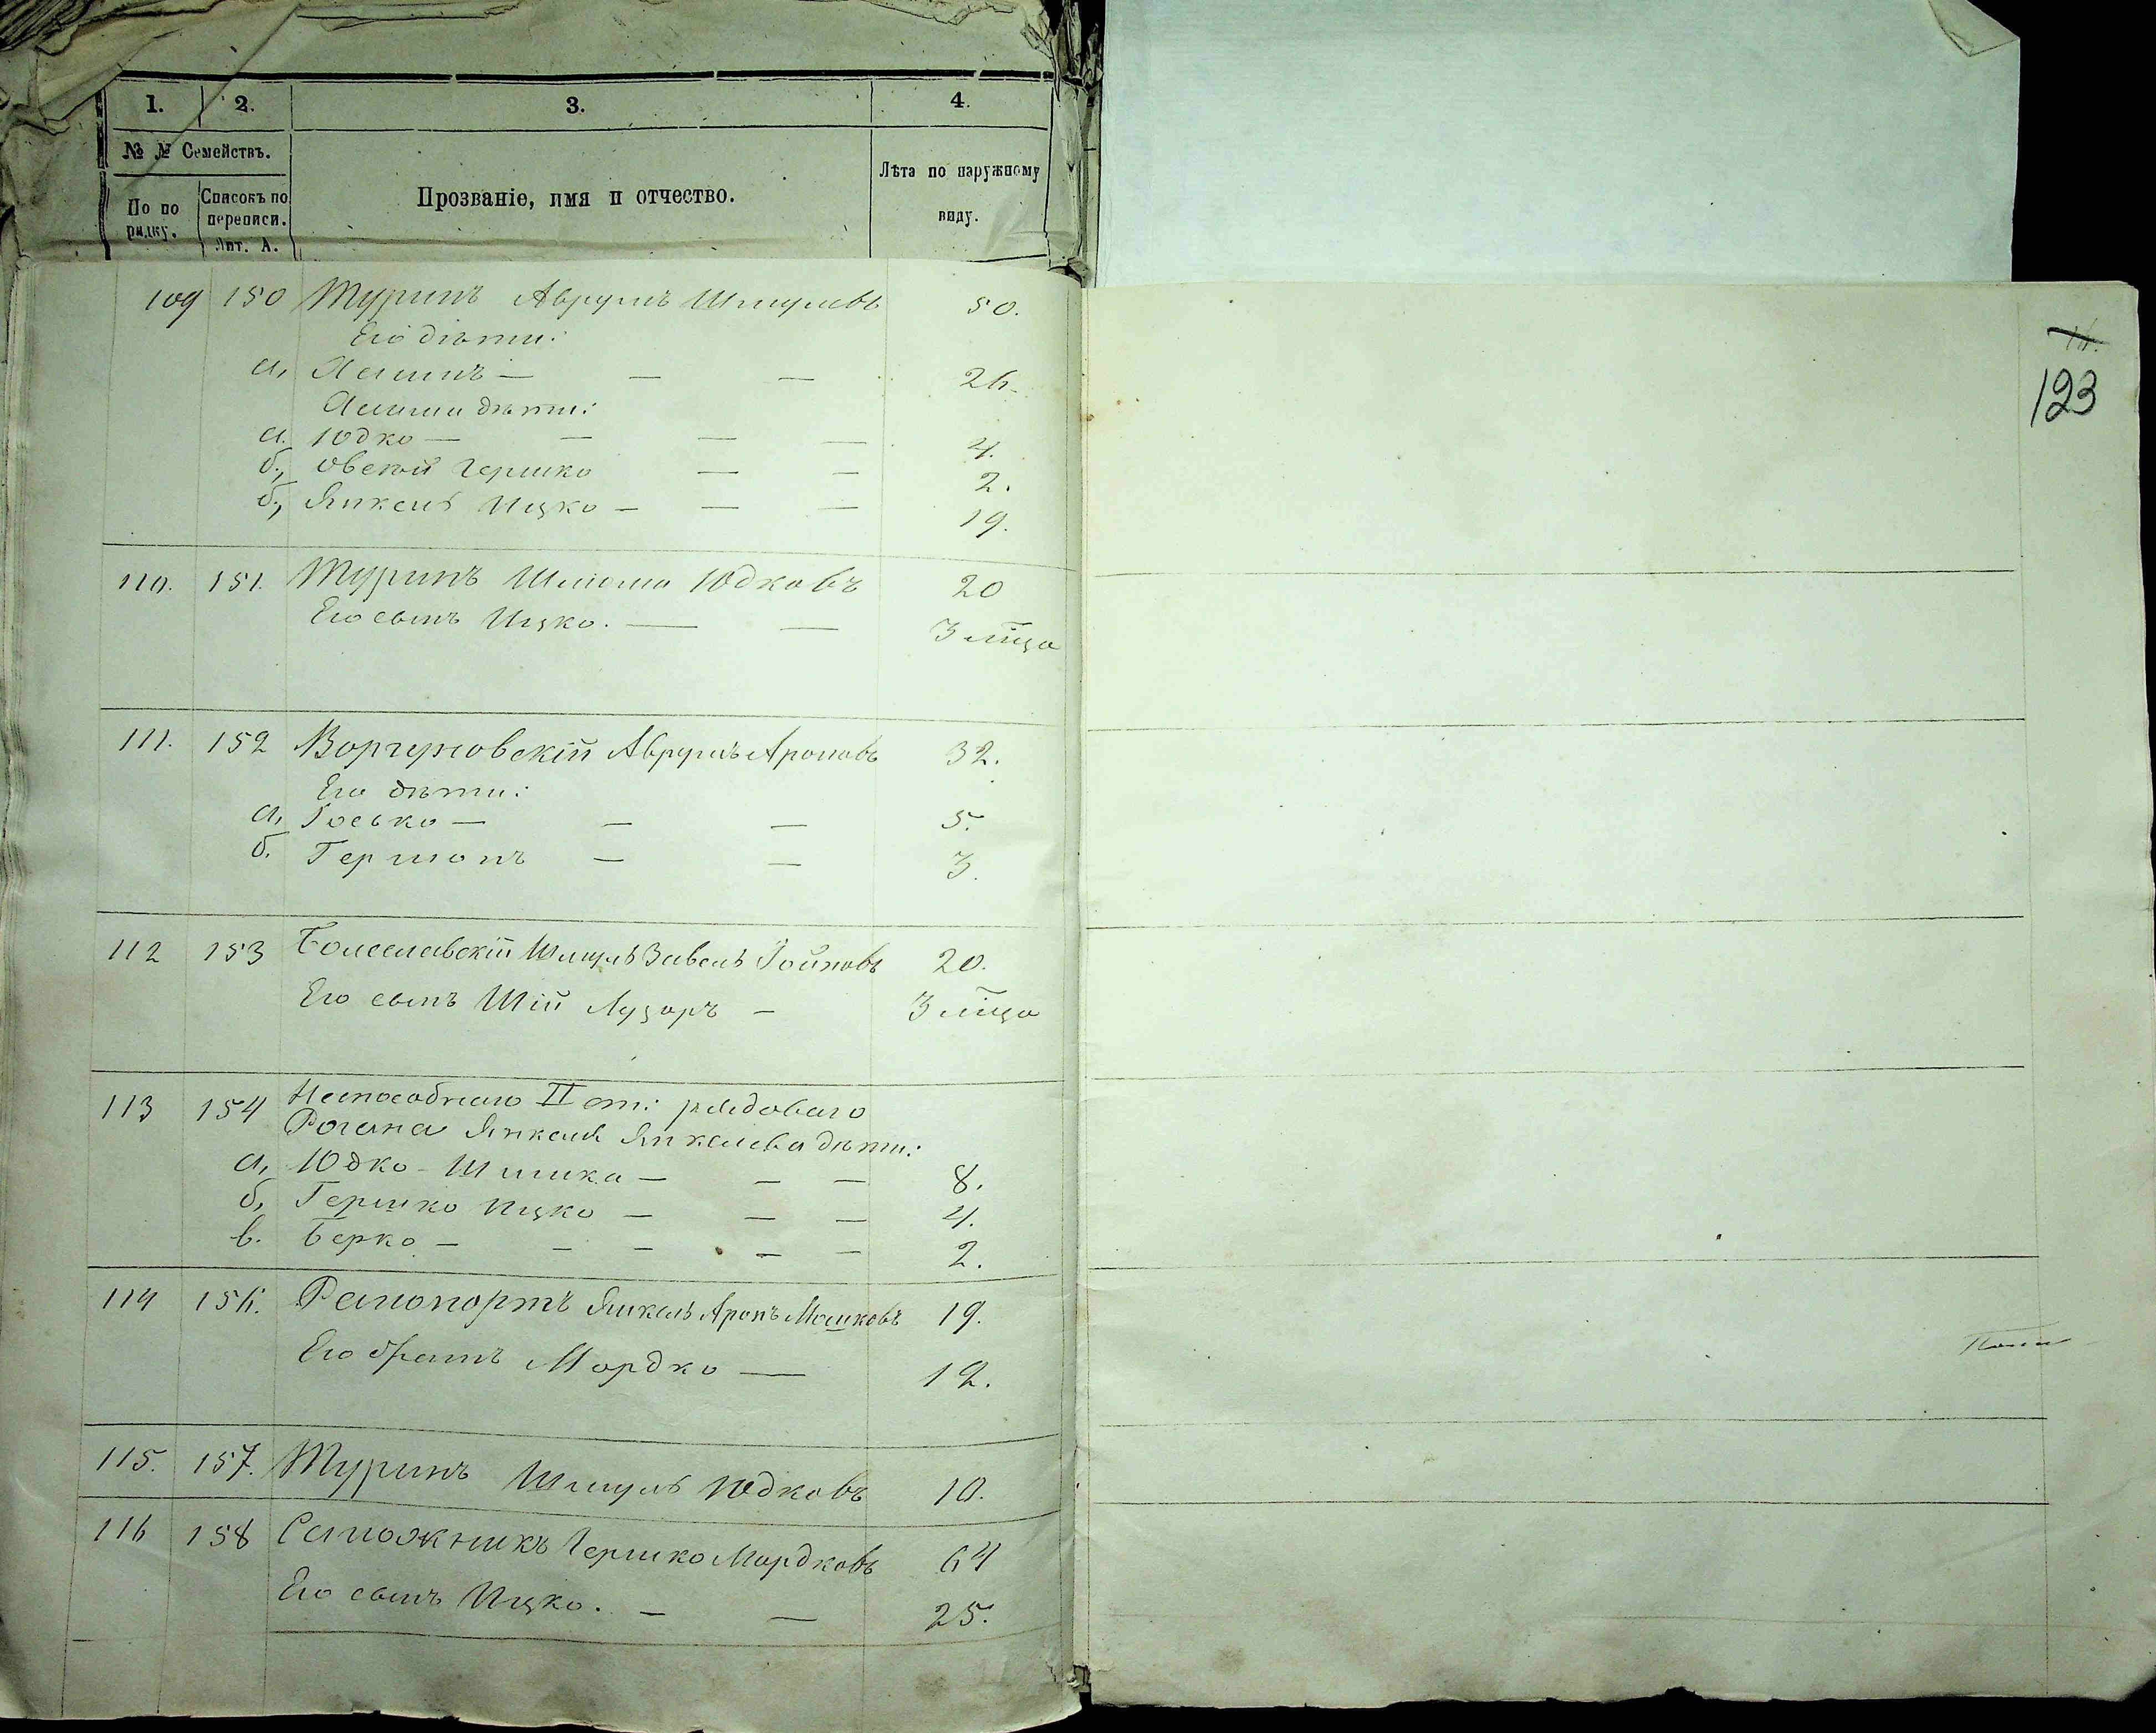 1. 2. 3. 4.
№ № Семействъ.
По по рядку. Списокъ по переписи. Лит. А. Прозваніе, имя и отчество. Лѣта по наружному виду.
109 150 Туринъ Аврумъ Шмулевъ 50.
Его дѣти:
а, — — 26.
дѣти:
а. Юдко — — — — 4.
б., Овсей Гершко — — 2.
б., Янкель Ицко — — — 19.
110. 151. Туринъ Шлёма Юдковъ 20
Его сынъ Ицко. — — 3 мѣца
111. 152 Аврумъ Ароновъ 32.
Его дѣти:
а, Іосько — — — 5.
б. Гершонъ — — 3.
112 153 Шмуль Завель 20.
Его сынъ Шій Лузоръ — 3 мѣца
113 154 Неспособнаго II от: рядоваго
Рогана Янкеля Янкелева дѣти:
а, Юдко Шлиика — — — 8.
б, Гершко Ицко — — — 4.
в. Берко — — — — — 2.
114 156. Рапопортъ Янкель Аронъ Мошковъ 19.
Его братъ Мордко — 12.
115. 157. Туринъ Шмуль Юдковъ 10.
116 158 Сапожникъ Гершко Мордковъ 64
Его сынъ Ицко. — — 25.
123